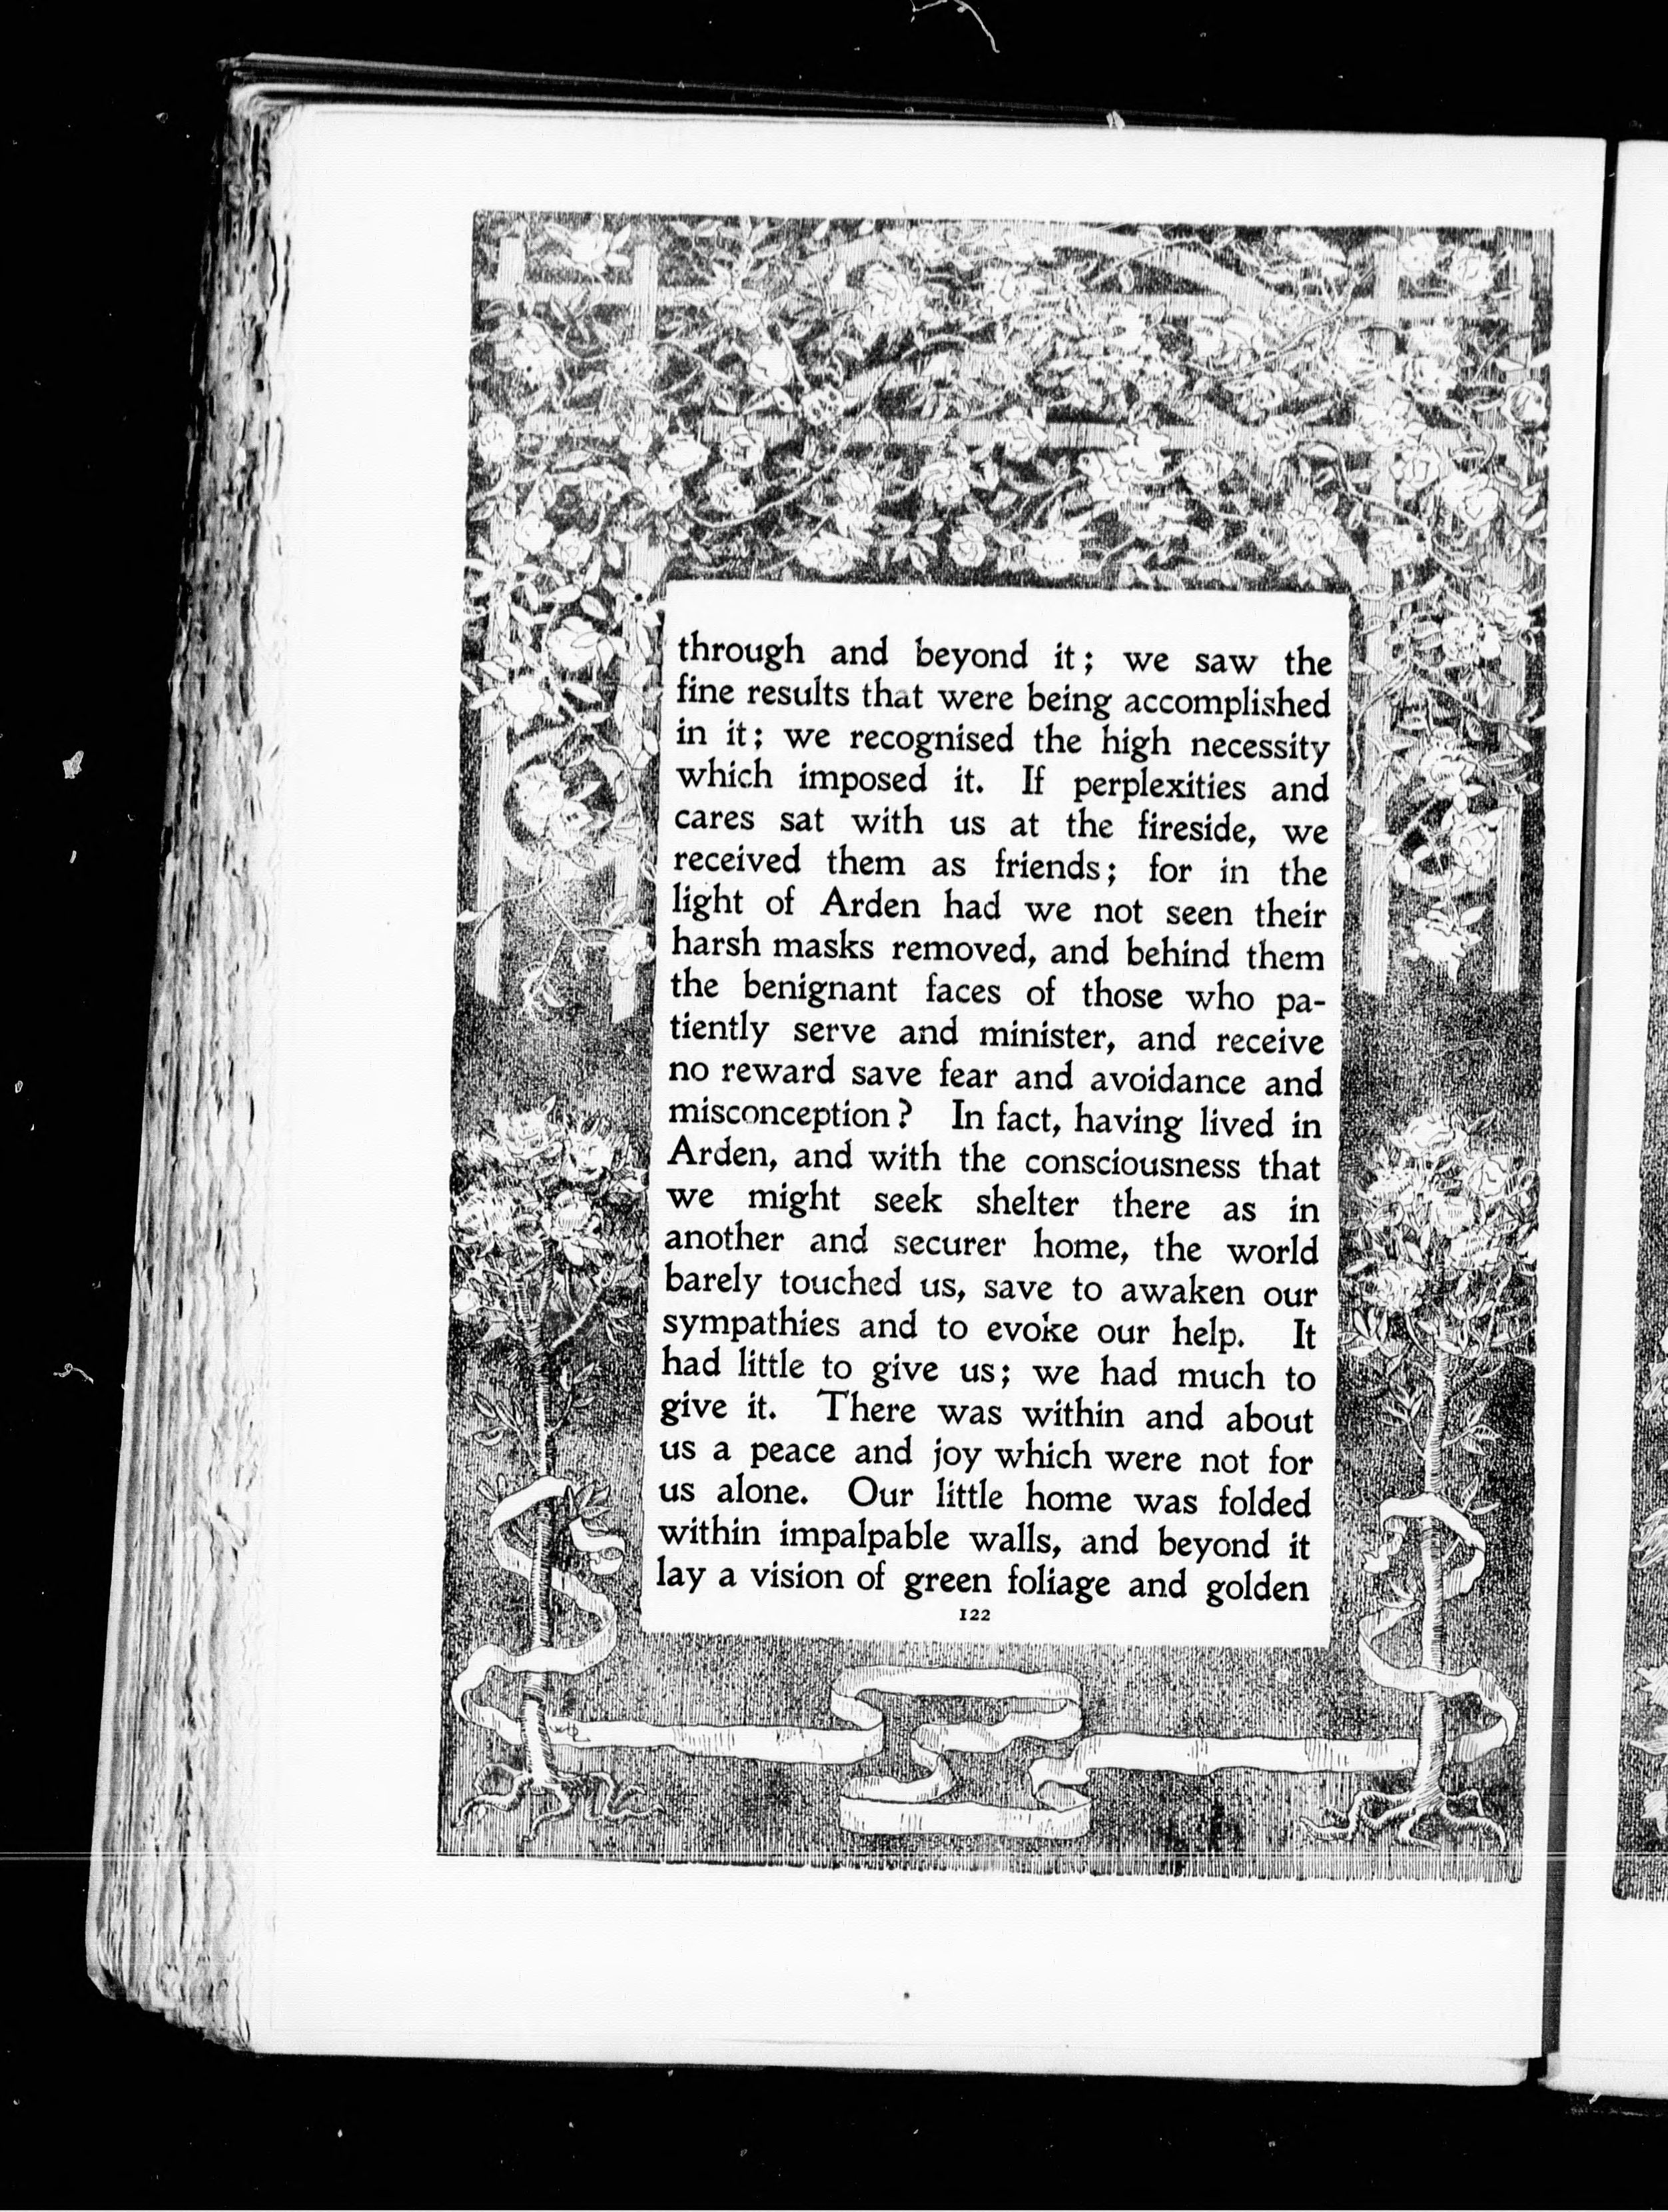 through and beyond it; we saw the
fine results that were being accomplished
in it; we recognised the high necessity
which imposed it. If perplexities and
cares sat with us at the fireside, we
received them as friends; for in the
light of Arden had we not seen their
harsh masks removed, and behind them
the benignant faces of those who pa-
tiently serve and minister, and receive
no reward save fear and avoidance and
misconception? In fact, having lived in
Arden, and with the consciousness that
we might seek shelter there as in
another and securer home, the world
barely touched us, save to awaken our
sympathies and to evoke our help. It
had little to give us; we had much to
give it. There was within and about
us a peace and joy which were not for
us alone. Our little home was folded
within impalpable walls, and beyond it
lay a vision of green foliage and golden
122